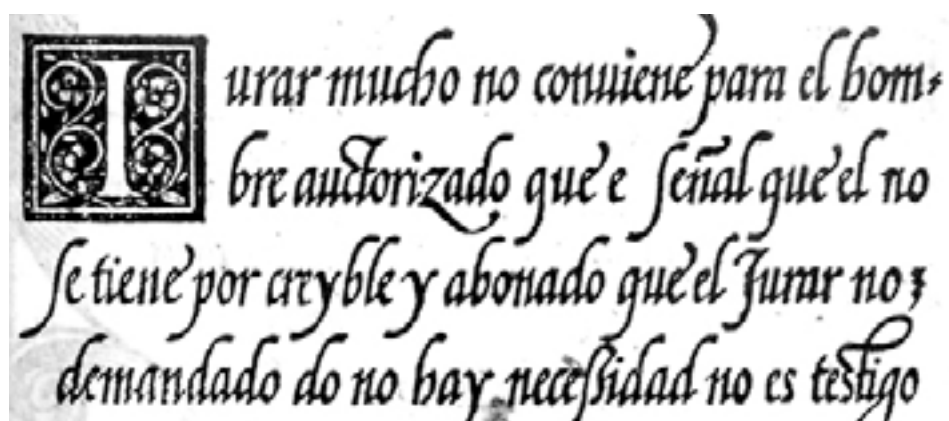 Iurar mucho no conuiene para el hom-
bre auctorizado que e señal que el no
se tiene por creyble y abonado que el Jurar no
demandado do no hay necessidad no es testigo